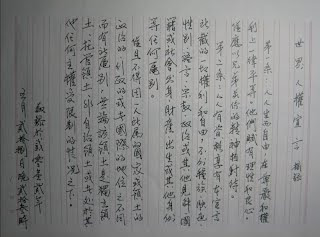 世界人權宣言 摘錄
第一條 人人生而自由,在尊嚴和權
利上一律平等。他們賦有理性和良心,
並應以兄弟關係的精神相對待。
第二條:人人有資格享有本宣言
所載的一切權利和自由,不分種族、膚色、
性別、語言、宗教、政治或其他見解、國
籍或社會出身、財產、出生或其他身份
等任何區別。
並且不得因一人所屬的國家或領土的
政治的、行政的或者國際的地位之不同
而有所區別,無論該領土是獨立領
土、託管領土、非自治領土或者處於其
他任何主權受限制的情況之下。